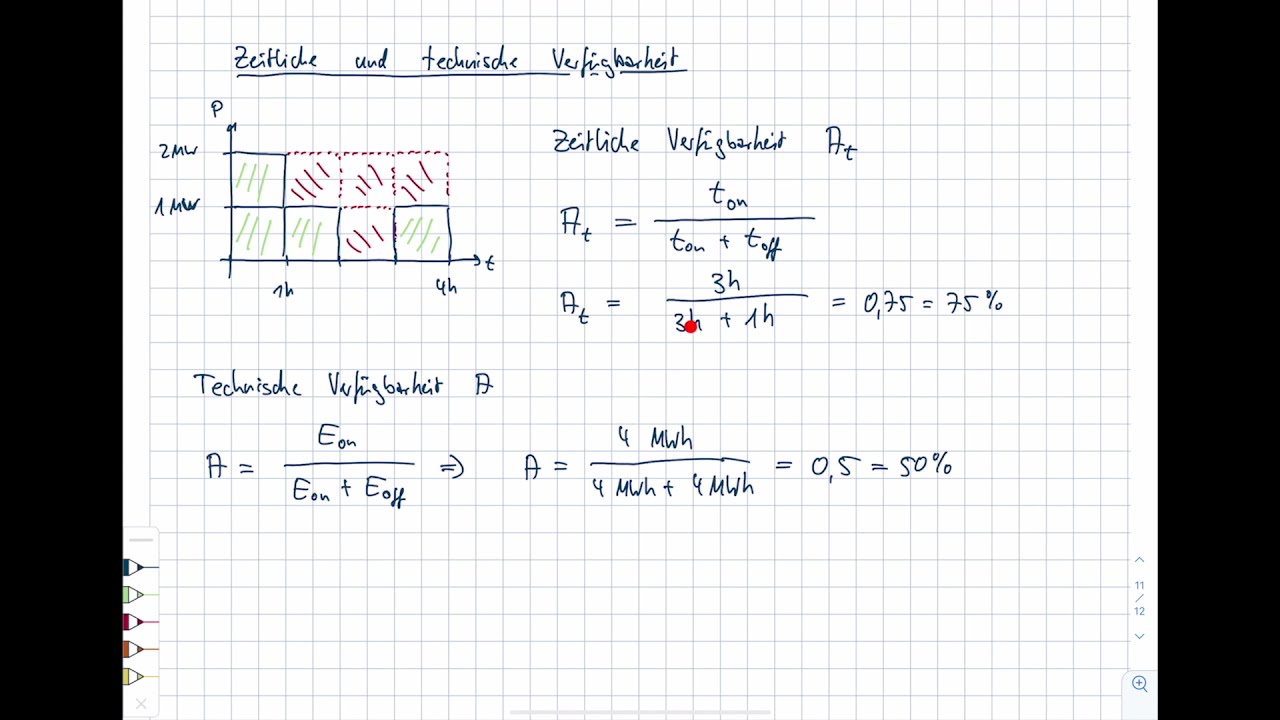 Zeitliche und technische Verfügbarkeit
P
2MW
1MW
1h
4h
t
Zeitliche Verfügbarkeit At
At = ton / (ton + toff)
At = 3h / (3h + 1h) = 0,75 = 75%
Technische Verfügbarkeit A
A = Eon / (Eon + Eoff) ⇒ A = 4 MWh / (4 MWh + 4 MWh) = 0,5 = 50%
11
/
12